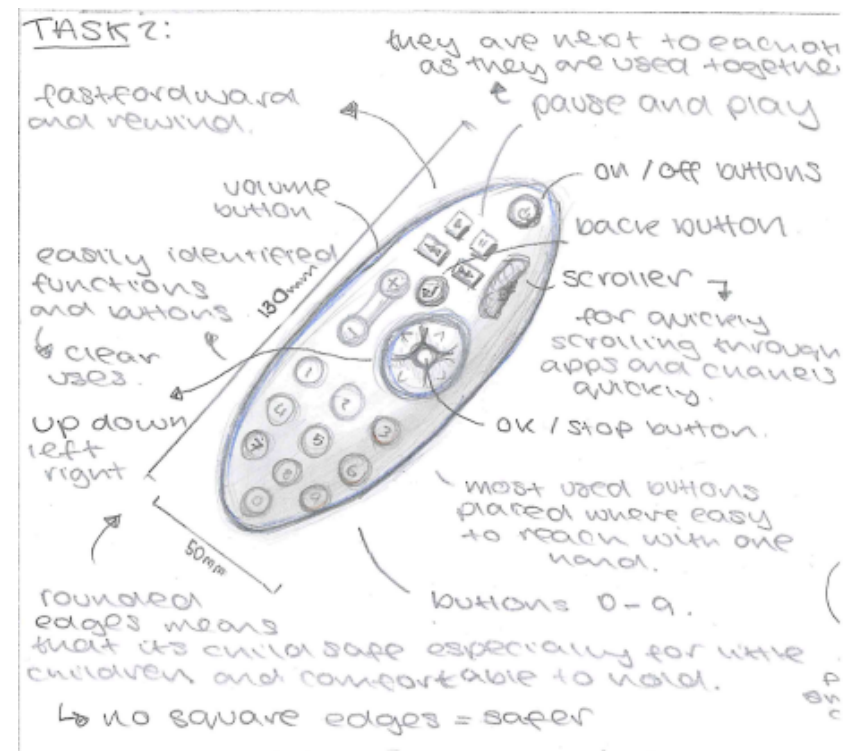 TASK 2:
they are next to eachot
as they are used togethe
pause and play
fastfordward
and rewind.
on / off buttons
volume
button
back button
easily identified
functions
and buttons
clear
uses.
130mm
scroller
for quickly
scrolling through
apps and channels
quickly.
+
-
1
2
3
4
5
6
7
8
9
0
up down
left
right
ok / stop button.
most used buttons
placed where easy
to reach with one
hand.
50mm
buttons 0-9.
rounded
edges means
that its child safe especially for little
children and comfortable to hold.
no square edges = safer